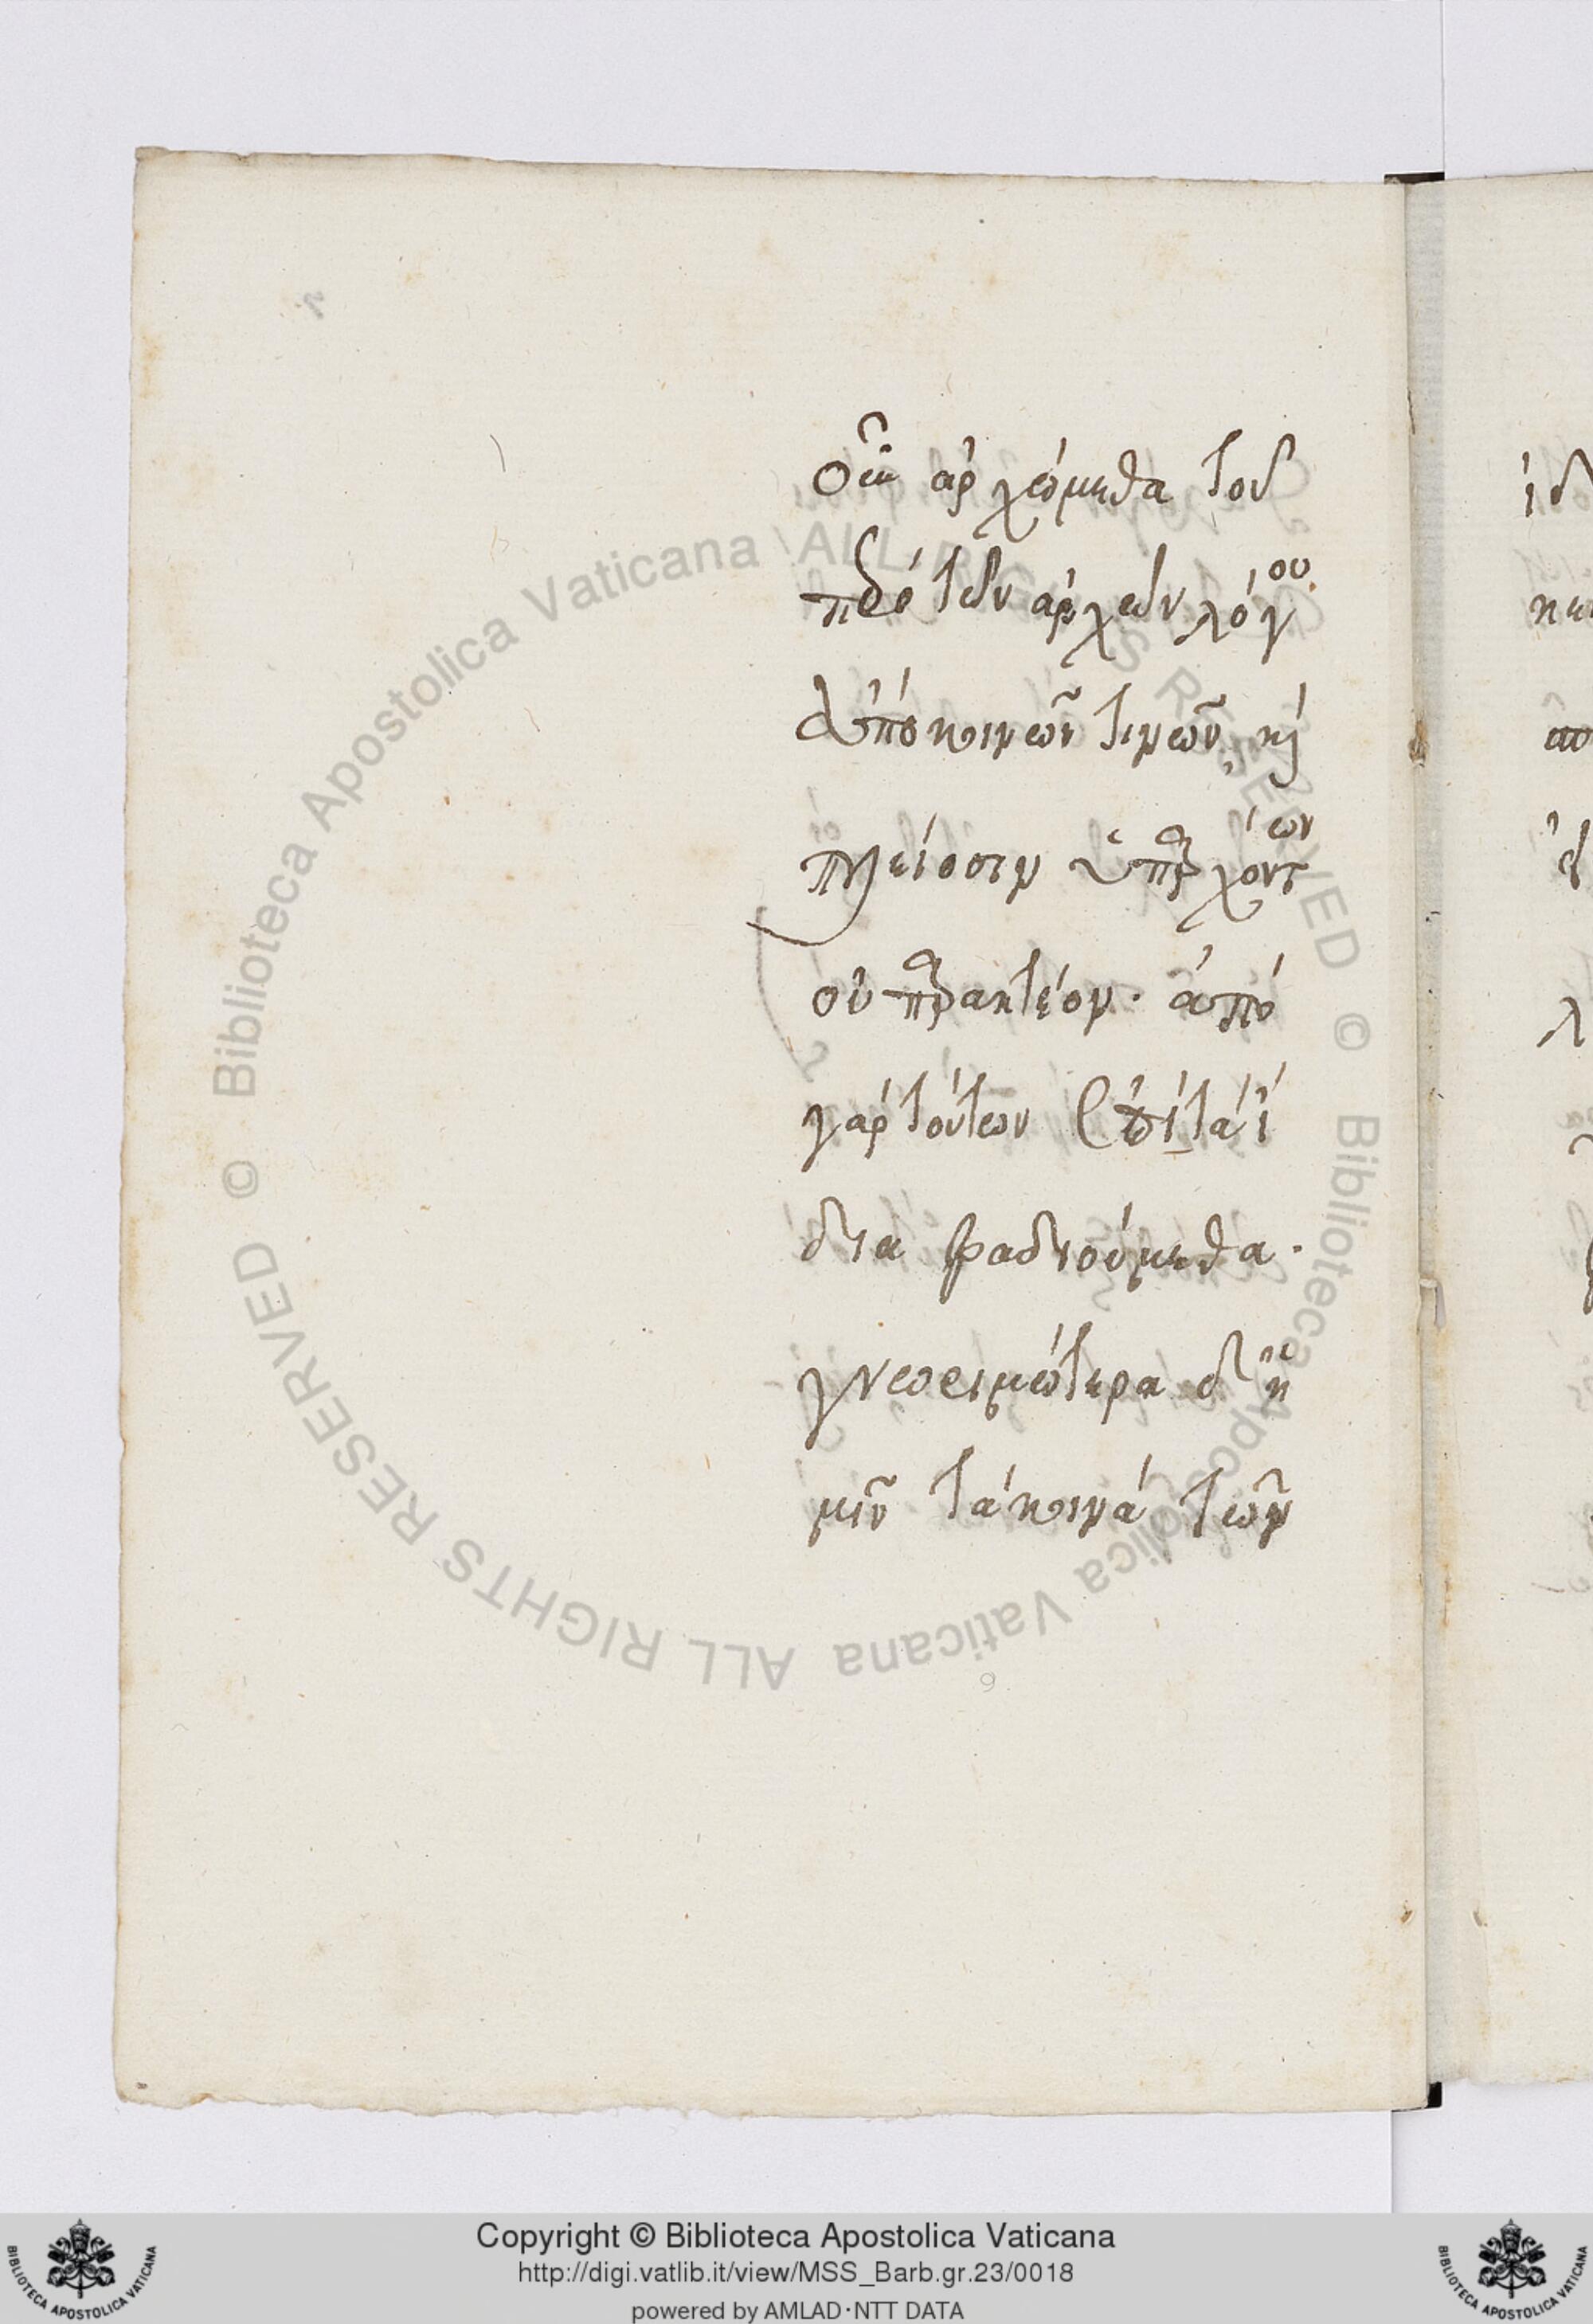 οὖν ἀρχόμεθα τοῦ
πρὸ τῶν ἀρχῶν λόγου
ἀπὸ κοινῶν τινῶν, καὶ
πλείοσιν ὑπαρχόντων
οὐ πρακτέον. ἀπὸ
γὰρ τούτων ἐπὶ τὰ ἴ
δια βαδιούμεθα.
γνωριμώτερα δ' ἡ
μῖν τὰ κοινὰ τῶν
ιδ
λ
9
© Biblioteca Apostolica Vaticana ALL RIGHTS RESERVED © Biblioteca Apostolica Vaticana ALL RIGHTS RESERVED
Copyright © Biblioteca Apostolica Vaticana
http://digi.vatlib.it/view/MSS_Barb.gr.23/0018
powered by AMLAD·NTT DATA
BIBLIOTECA APOSTOLICA VATICANA
BIBLIOTECA APOSTOLICA VATICANA